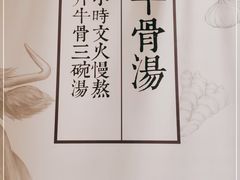 牛骨湯
小時文火慢熬
斤牛骨三碗湯